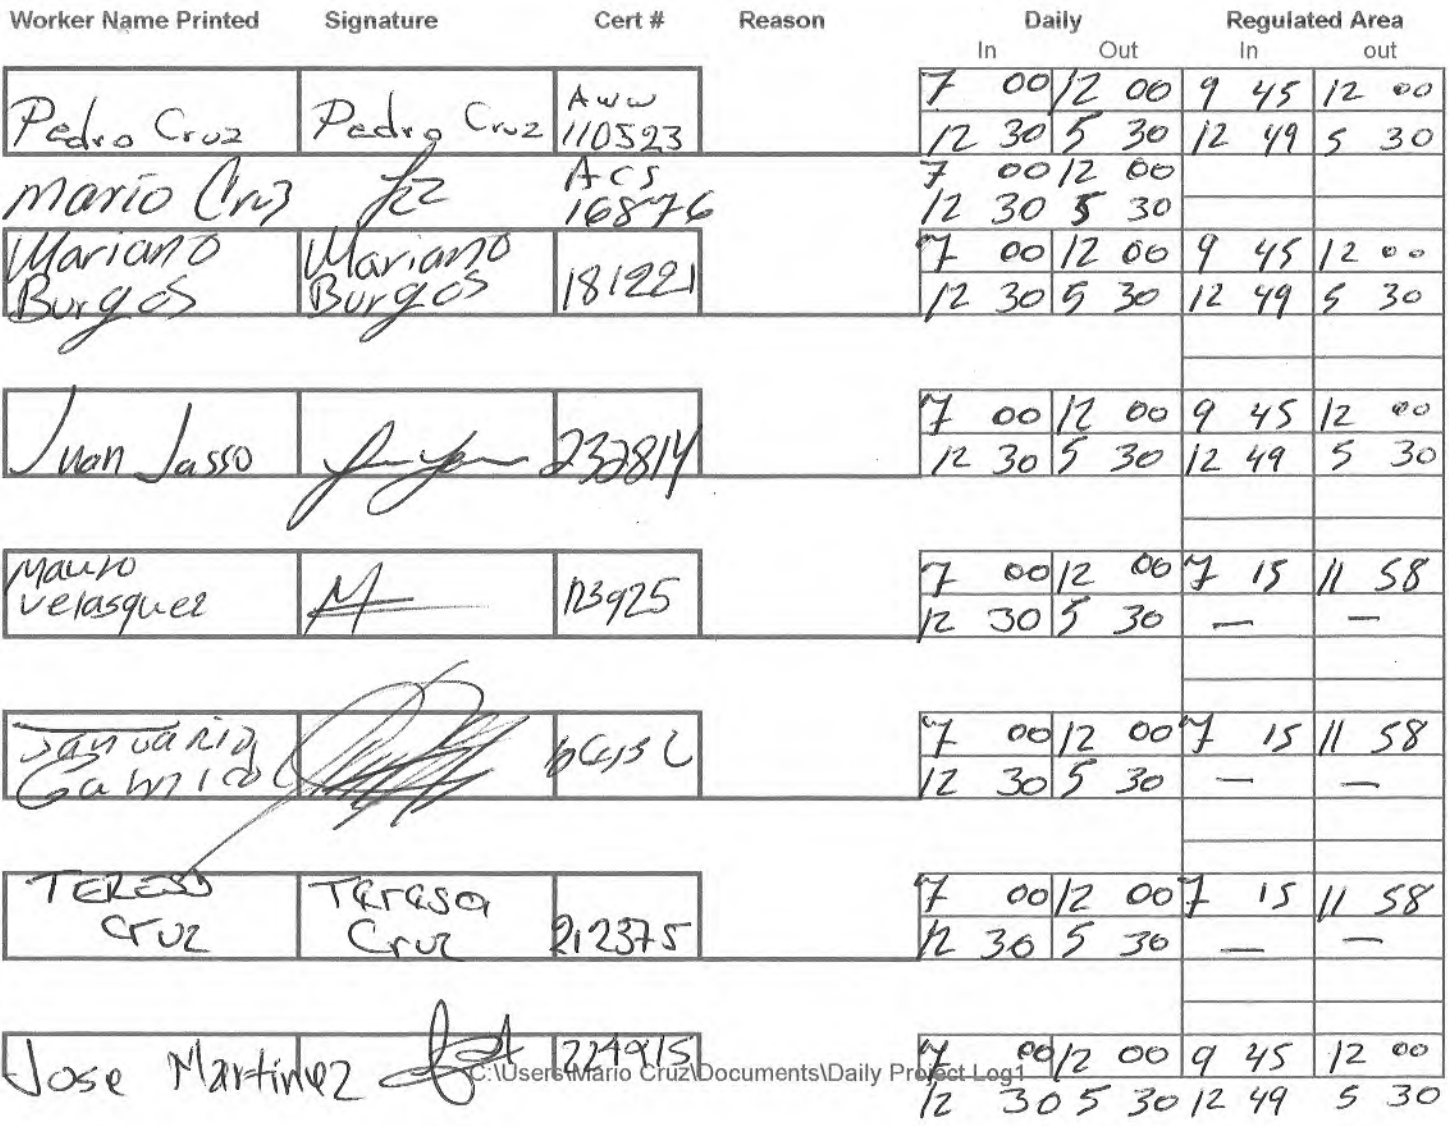 Worker Name Printed Signature Cert # Reason Daily Regulated Area
In Out In out
Pedro Cruz Pedro Cruz Aww 110523 7 00 12 00 9 45 12 00
12 30 5 30 12 49 5 30
Mario Cruz ACS 16876 7 00 12 00
12 30 5 30
Mariano Burgos Mariano Burgos 181221 7 00 12 00 9 45 12 00
12 30 5 30 12 49 5 30
Juan Jasso 232814 7 00 12 00 9 45 12 00
12 30 5 30 12 49 5 30
Mauro Velasquez 123925 7 00 12 00 7 15 11 58
12 30 5 30 — —
7 00 12 00 7 15 11 58
12 30 5 30 — —
TERESO Cruz Teresa Cruz 212375 7 00 12 00 7 15 11 58
12 30 5 30 — —
Jose Martinez 224915 7 00 12 00 9 45 12 00
C:\Users\Mario Cruz\Documents\Daily Project Log1
12 30 5 30 12 49 5 30